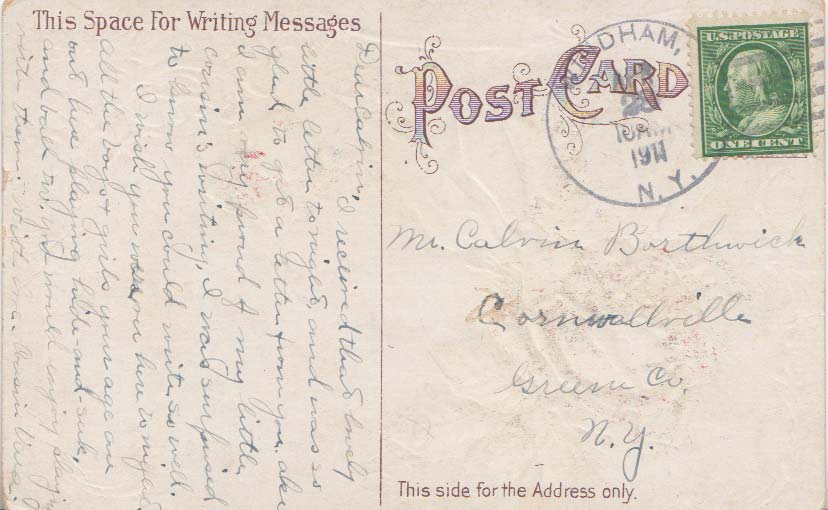 This Space For Writing Messages
Dear Calvin, I received that lovely
little letter to-night, and was so
glad to get a letter from you. Also
I am very proud of my little
cousin's writing, I was surprised
to know you could write so well.
I wish you were on here to-night.
All the boys & girls your age are
out here playing hide-and-seek,
and ball too. You would enjoy playing
with them. Write me. Cousin
POST CARD
DHAM,
10 AM
1911
N.Y.
U.S. POSTAGE
ONE CENT
Mr. Calvin Borthwick
Cornwallville
Greene Co.
N.Y.
This side for the Address only.